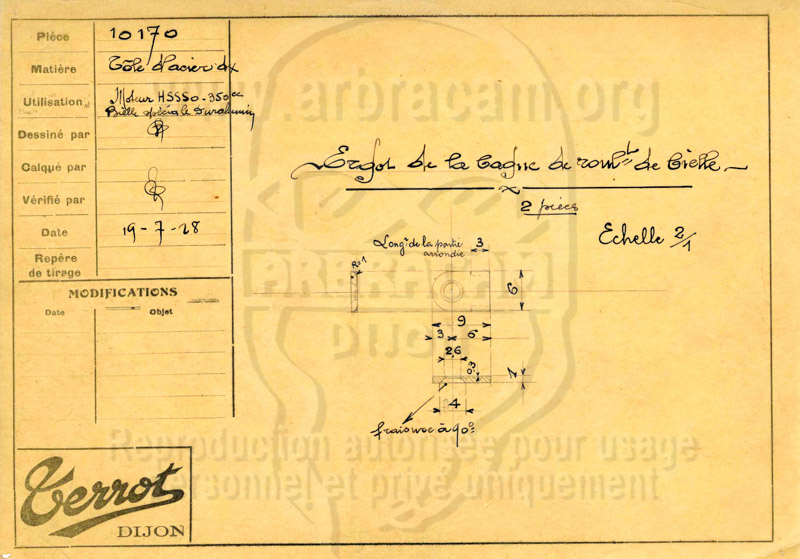 Pièce 10170
Matière Tôle d'acier dx
Utilisation Moteur HSSSO-350cc
Bielle spéciale Duralumin
Dessiné par
Calqué par
Vérifié par
Date 19-7-28
Repère
de tirage
MODIFICATIONS
Date Objet
Terrot
DIJON
Ergot de la bague de roult de bielle
2 pièces
Echelle 2/1
Longr de la partie
arrondie
3
R=1
6
9
3 6
2,6
0,3
1
4
fraisure à 90°
www.arbracam.org
ARBRACAM
DIJON
Reproduction autorisée pour usage
personnel et privé uniquement